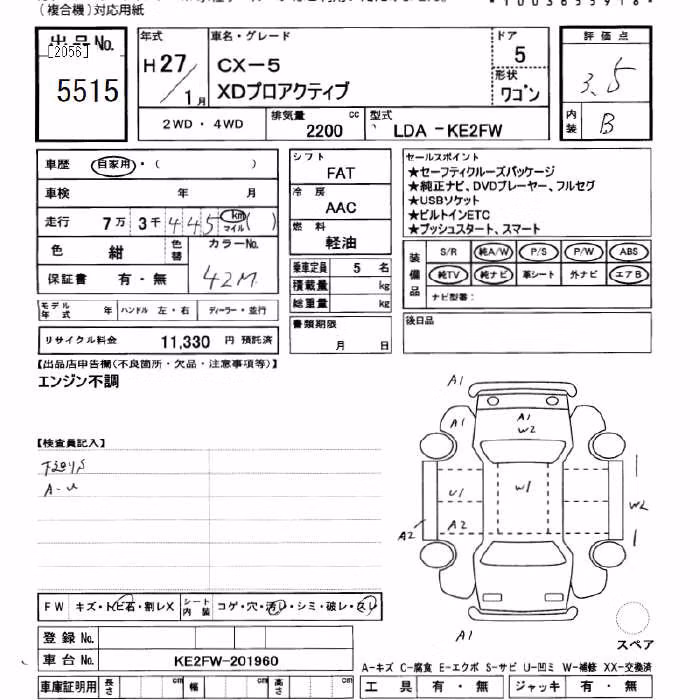 (複合機)対応用紙
出品No.
[2056]
5515
年式 車名・グレード ドア 評価点
H27/1月 CX-5 5 3.5
XDプロアクティブ 形状 ワゴン 内装 B
2WD・4WD 排気量 2200 cc 型式 LDA -KE2FW
車歴 自家用・( )
車検 年 月
走行 7万3千445 km マイル ( )
色 紺 色替 カラーNo. 42M
保証書 有・無
モデル年式 年 ハンドル 左・右 ディーラー・並行
リサイクル料金 11,330 円 預託済
シフト FAT
冷房 AAC
燃料 軽油
乗車定員 5 名
積載量 kg
総重量 kg
書類期限 月 日
セールスポイント
★セーフティクルーズパッケージ
★純正ナビ、DVDプレーヤー、フルセグ
★USBソケット
★ビルトインETC
★プッシュスタート、スマート
装備品 S/R 純A/W P/S P/W ABS
純TV 純ナビ 革シート 外ナビ エアB
ナビ型番:
後日品
【出品店申告欄(不良箇所・欠品・注意事項等)】
エンジン不調
【検査員記入】
A-U
A1
A1 A1 W2
U1 W1 W2
A2 A2
A1
スペア
FW キズ・トビ石・割レX シート内装 コゲ・穴・汚レ・シミ・破レ・スレ
登録No.
車台No. KE2FW-201960
車庫証明用 長さ cm 幅 cm 高さ cm
A-キズ C-腐食 E-エクボ S-サビ U-凹ミ W-補修 XX-交換済
工具 有・無 ジャッキ 有・無